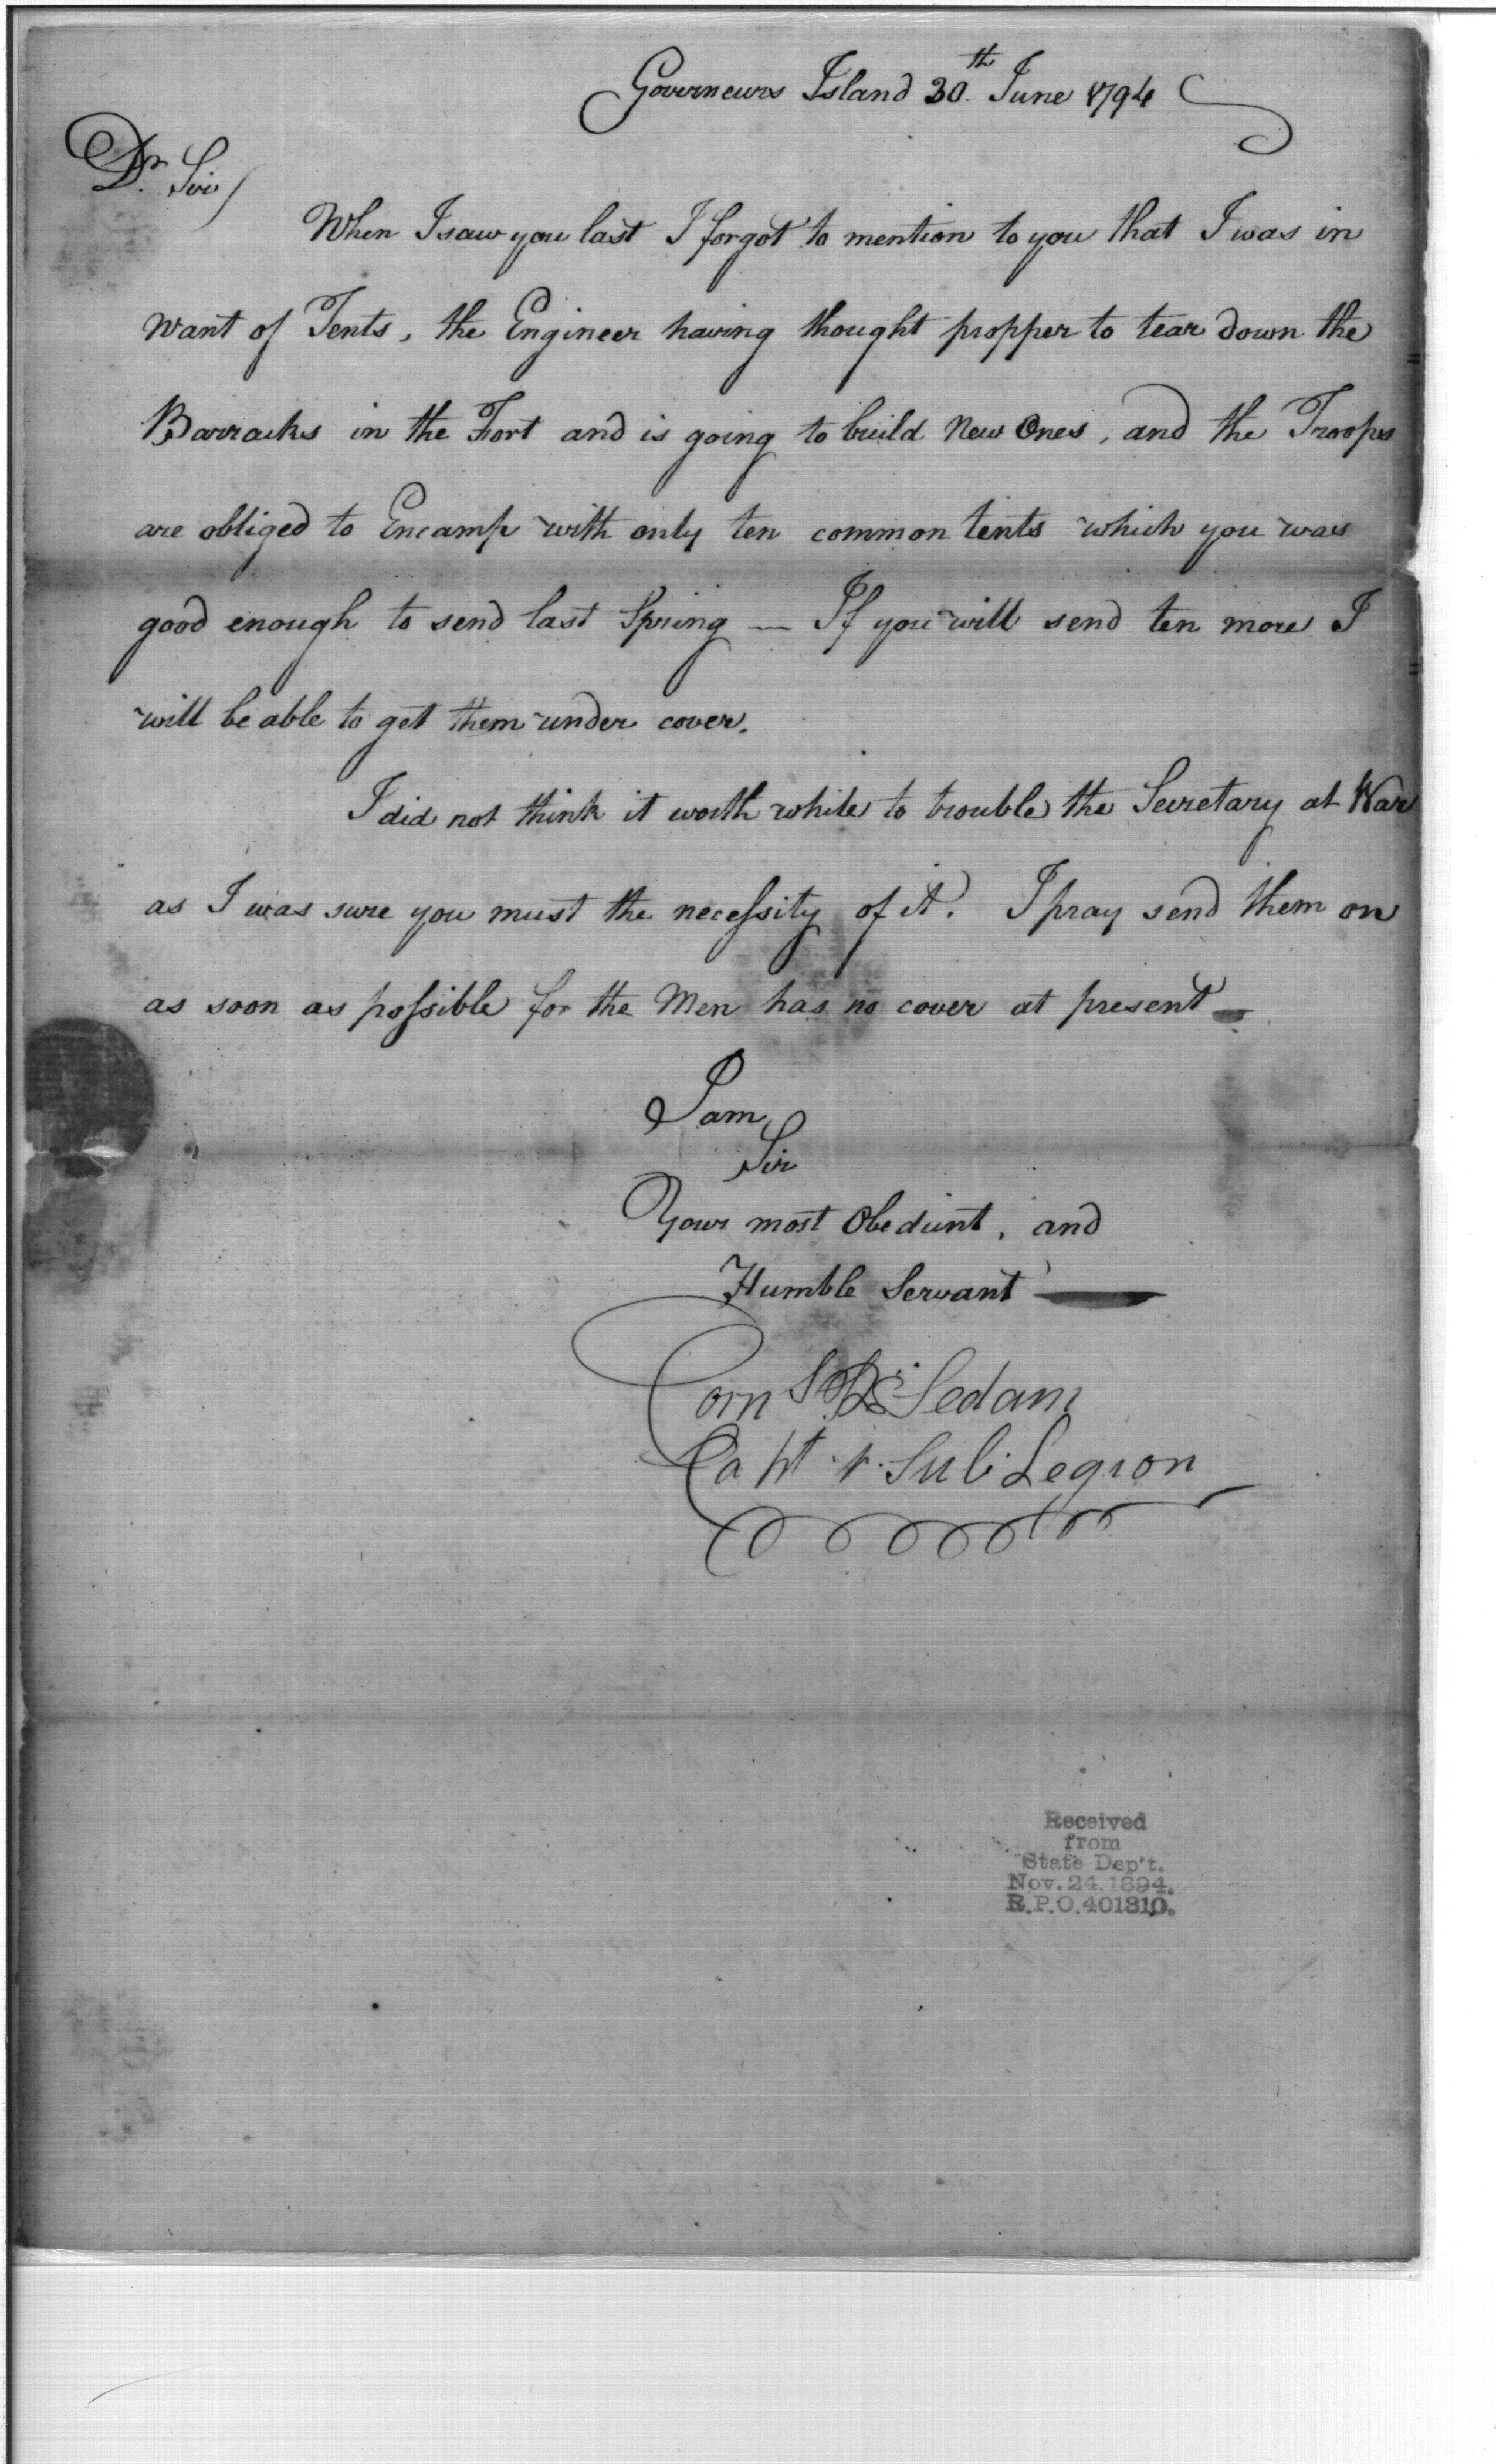 Governeurs Island 30th June 1794
Dr. Sir/
When I saw you last I forgot to mention to you that I was in
want of Tents, the Engineer having thought propper to tear down the
Barracks in the Fort and is going to build New Ones, and the Troops
are obliged to Encamp with only ten common tents which you was
good enough to send last Spring — If you will send ten more I
will be able to get them under cover.
I did not think it worth while to trouble the Secretary at War
as I was sure you must the necessity of it. I pray send them on
as soon as possible for the Men has no cover at present —
I am
Sir
Your most Obedient, and
Humble Servant —
Corn Sedam
Capt 1. Sub Legion
Received
from
State Dep't.
Nov. 24. 1894.
R.P.O. 401310.